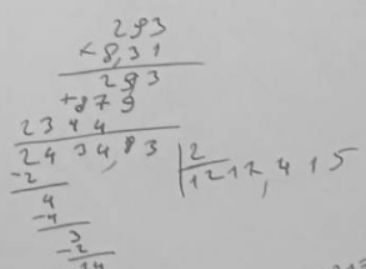 293
×8,31
293
+879
2344
2434,83 | 2
-2 1217,415
4
-4
3
-2
14